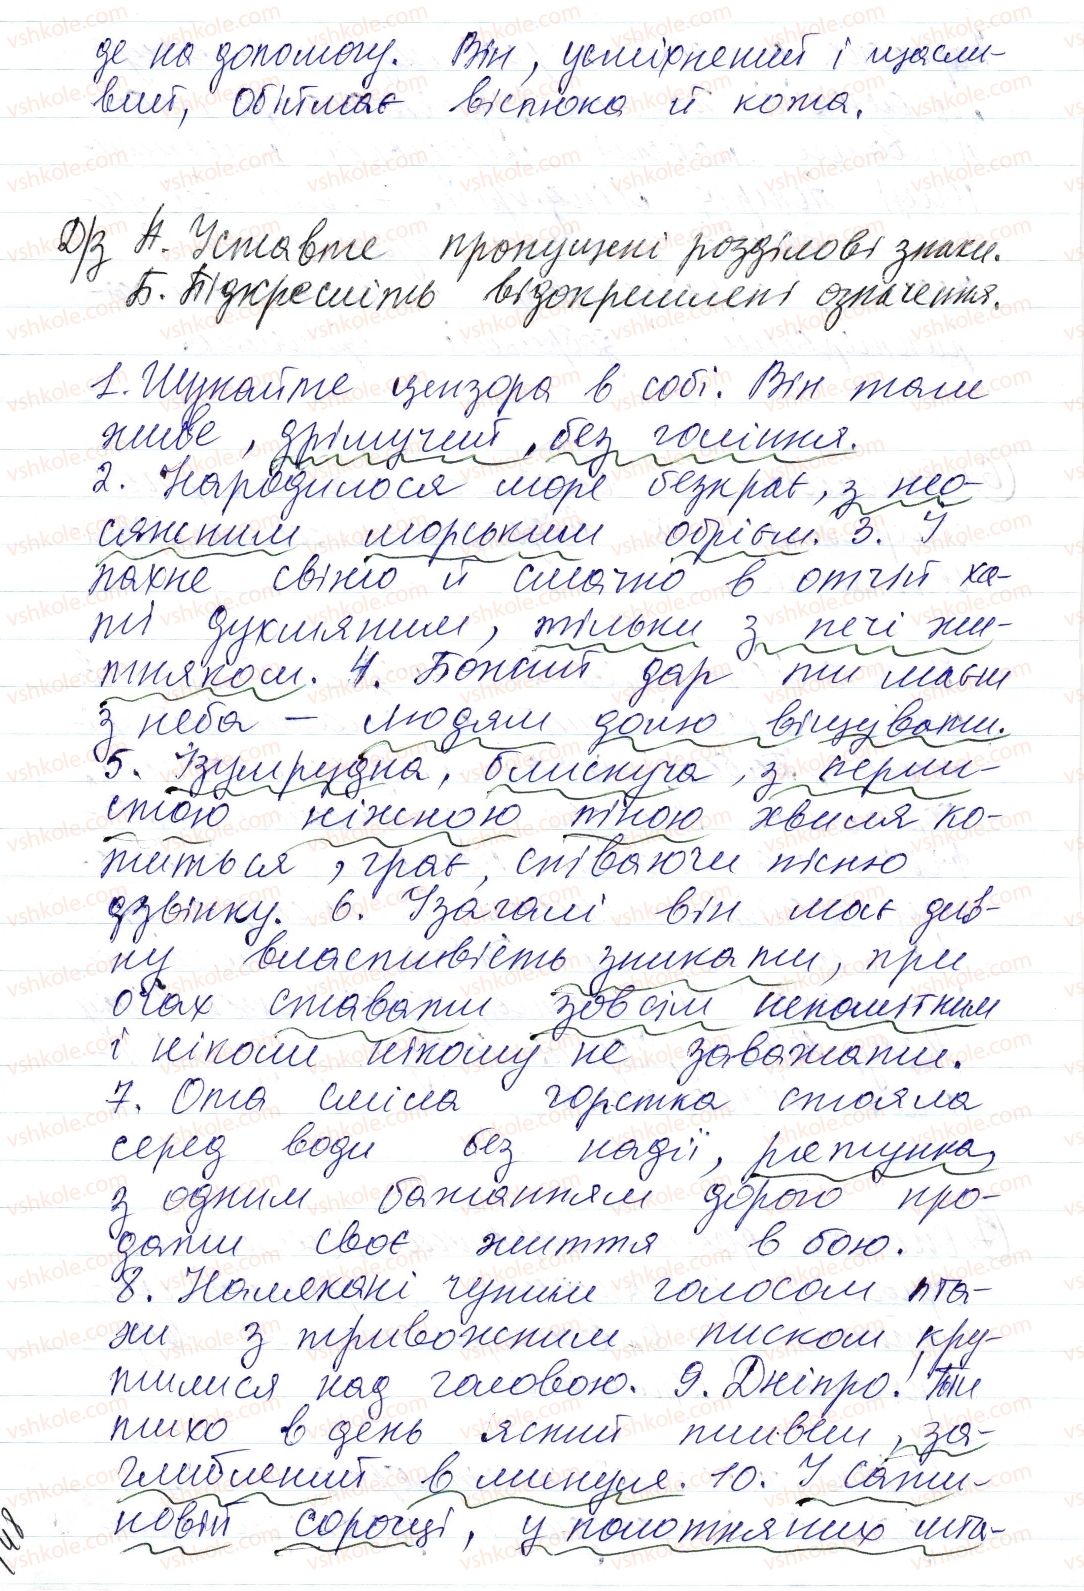 де на допомогу. Він, усміхнений і щасли-
вий, обіймає віслюка й кота.
Д/з А. Уставте пропущені розділові знаки.
Б. Підкресліть відокремлені означення.
1. Шукайте цензора в собі. Він там
живе, дрімучий, без гоління.
2. Народилося море безкрає, з нео-
сяжним морським обрієм. 3. І
пахне свіжо й смачно в отчій ха-
ті духмяним, тільки з печі жи-
тняком. 4. Божий дар ти маєш
з неба – людям долю віщувати.
5. Ізумрудна, блискуча, з перли-
стою ніжною піною хвиля ко-
титься, грає, співаючи пісню
дзвінку. 6. Узагалі він має див-
ну властивість зникати, при
очах ставати зовсім непомітним
і ніколи нікому не заважати.
7. Ота смілa горстка стояла
серед води без надії, рятунка,
з одним бажанням дорого про-
дати своє життя в бою.
8. Налякані чужим голосом пта-
хи з тривожним писком кру-
тилися над головою. 9. Дніпро! Ти
тихо в день ясний пливеш, за-
глиблений в минуле. 10. У сати-
новій сорочці, у полотняних шта-
148